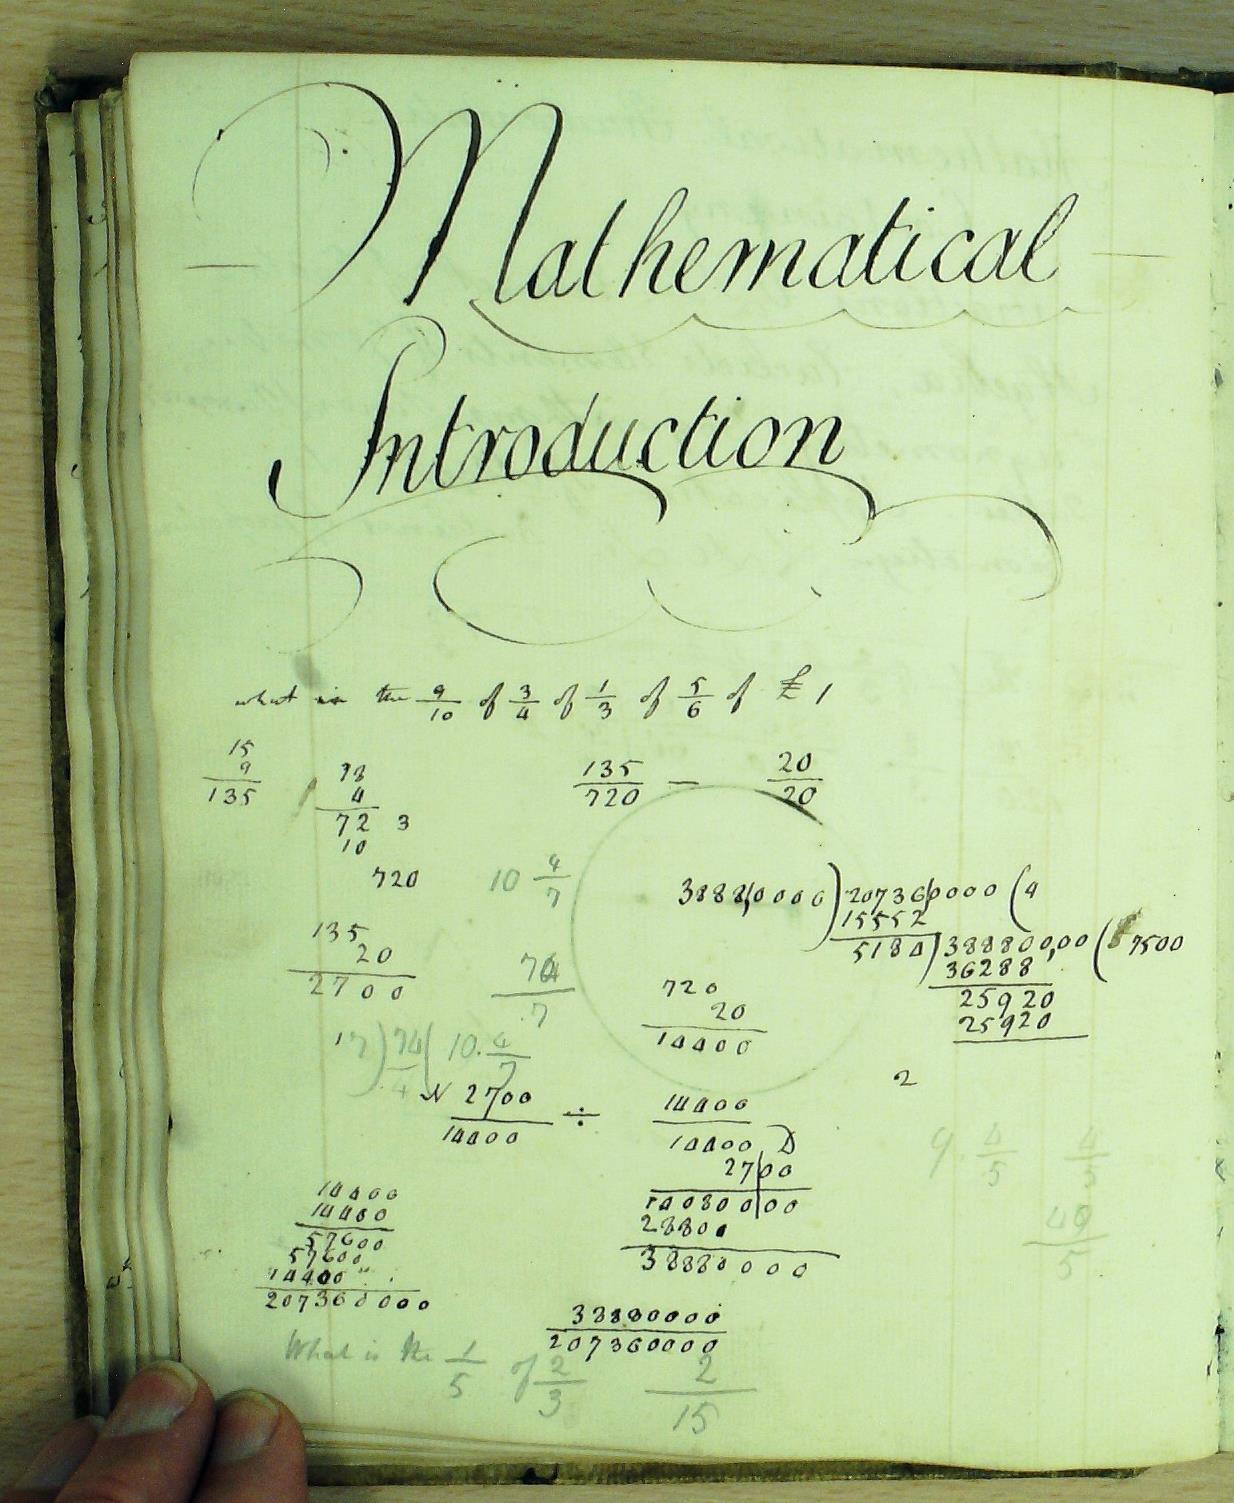 Mathematical
Introduction
what is the 9/10 of 3/4 of 1/3 of 5/6 of £1
15
9
135
18
4
72 3
10
720
135/720 — 20/20
10 4/7
38880000)207360000(4
15552
5184)3888000,00(7500
36288
25920
25920
135
20
2700
74/7
720
20
14400
7)74(10.4/7
4
2
2700/14400 ÷ 14400/14400
2700
10080000
28800
38880000
9 4/5 4/5
49/5
14400
14400
57600
57600
14400
207360000
38880000
207360000
What is the 1/5 of 2/3 2/15